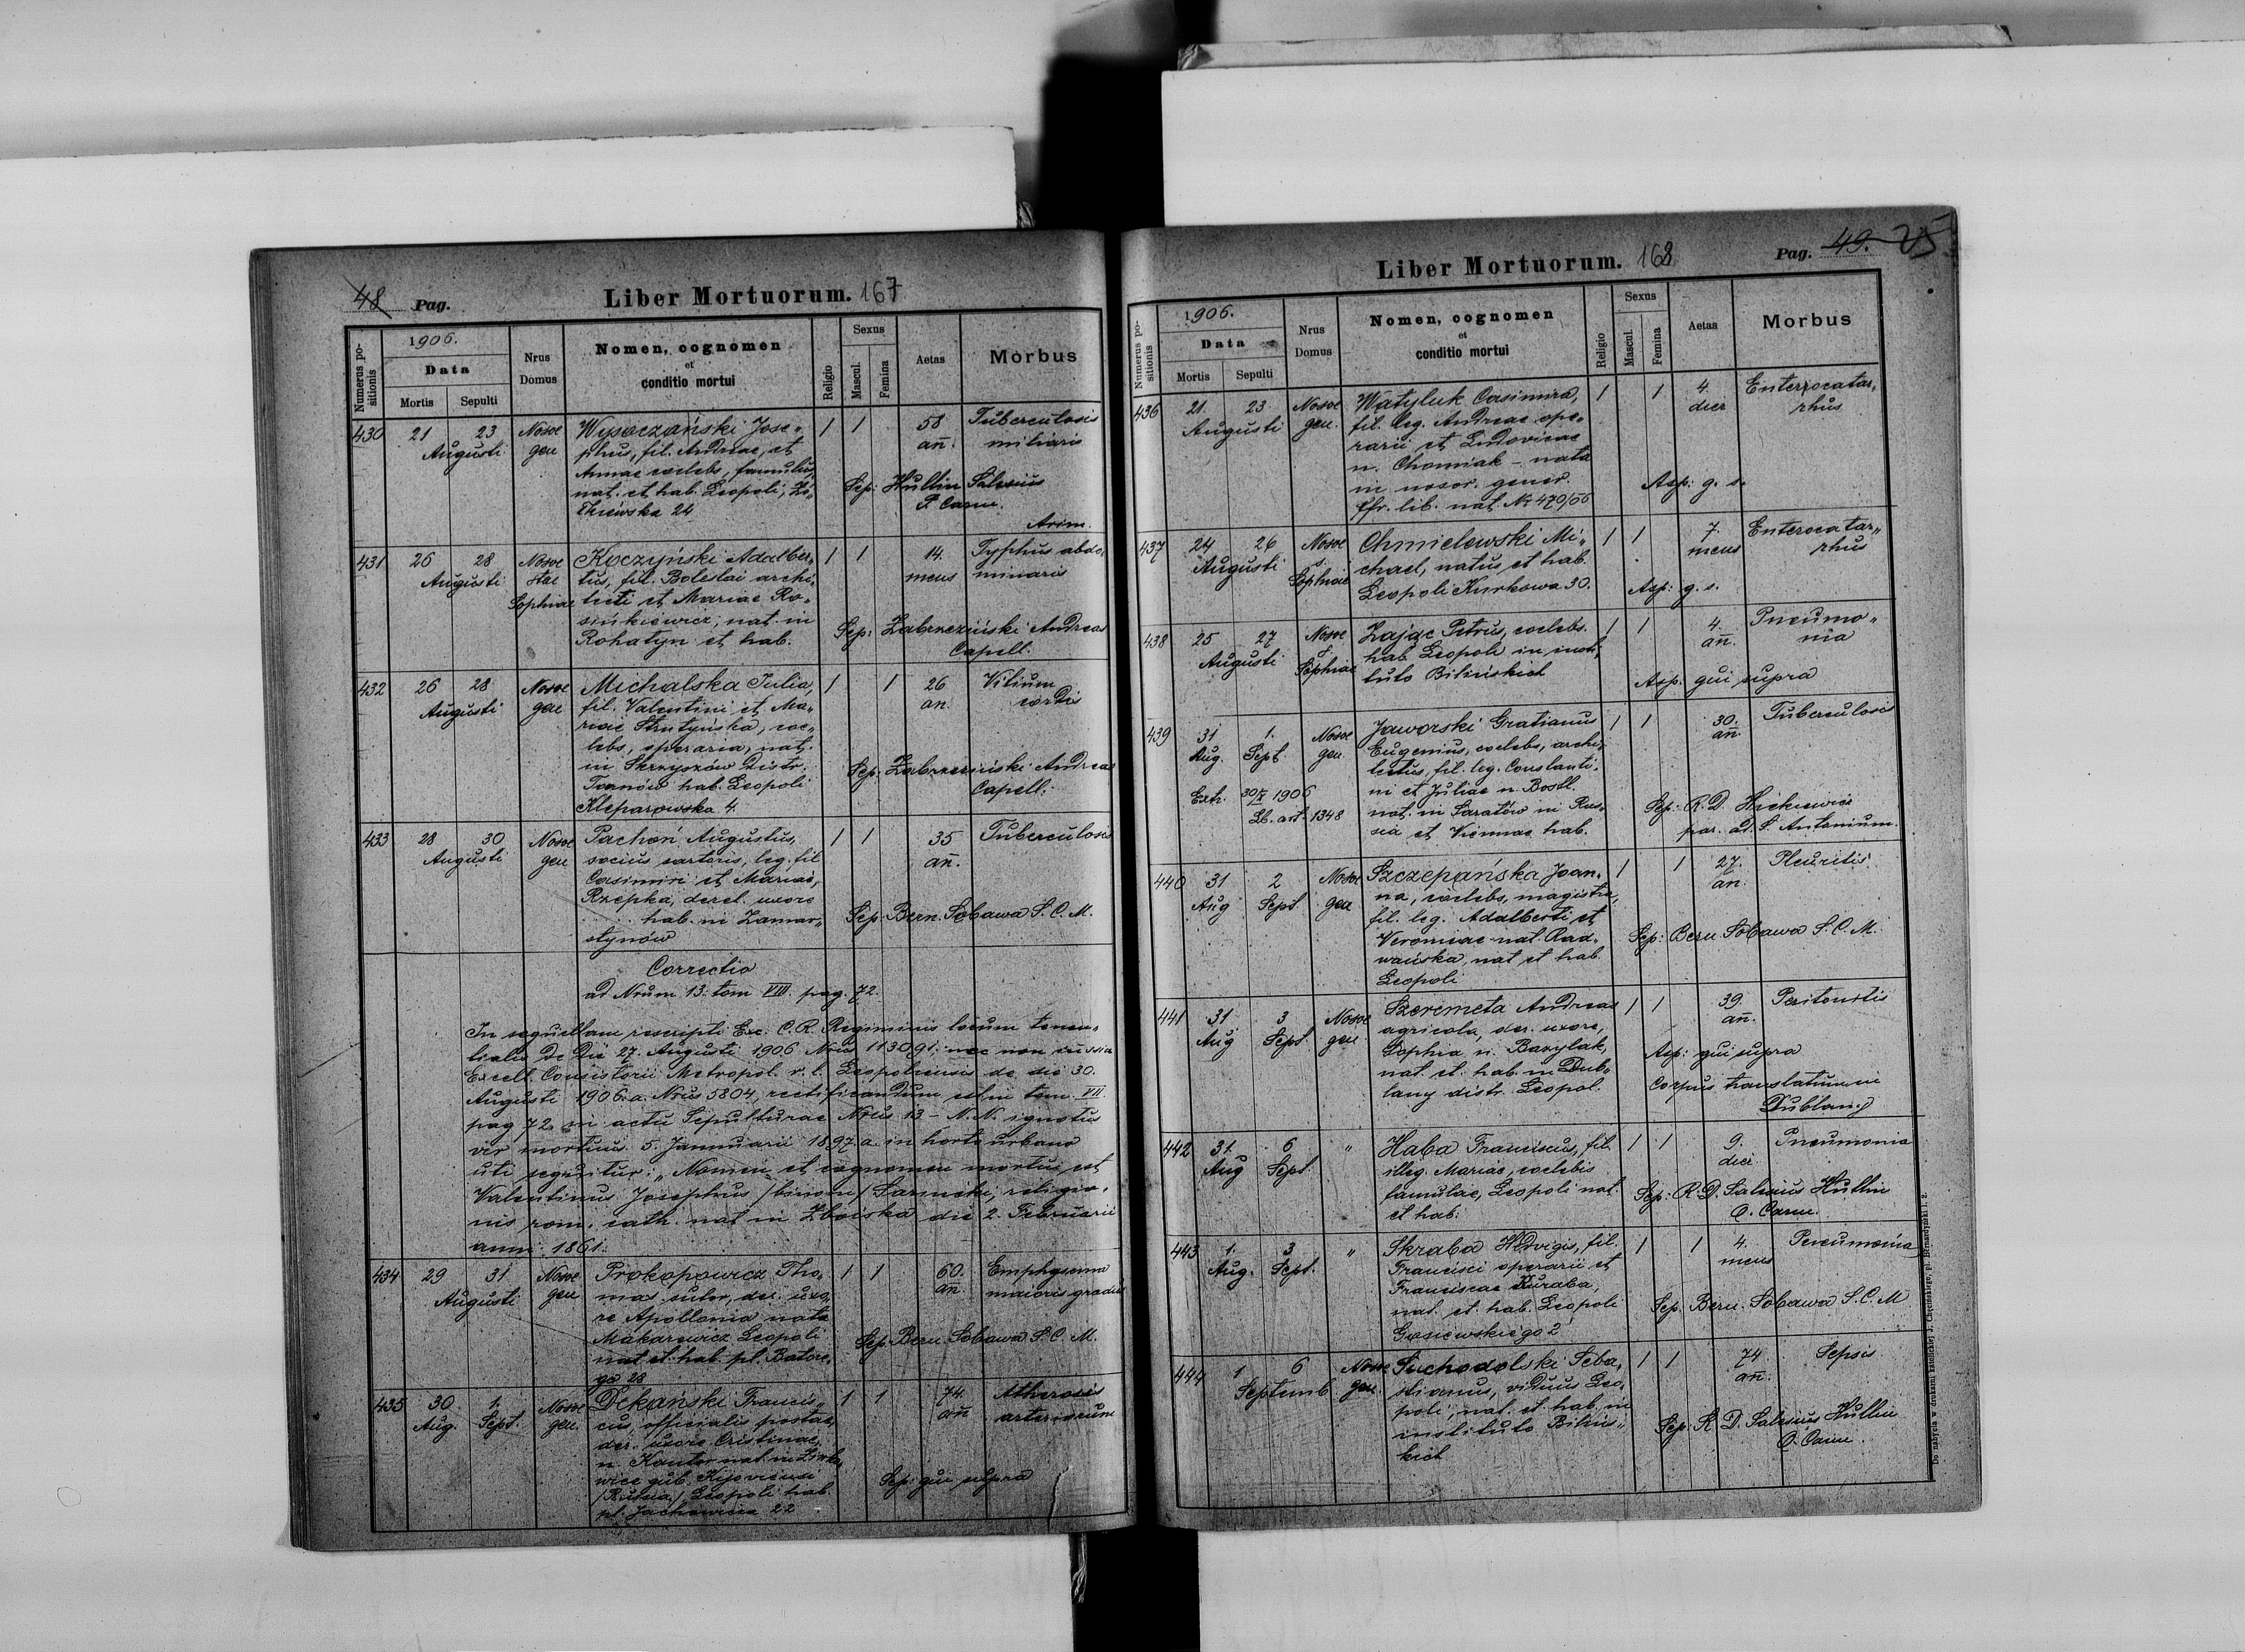 48 Pag.
Liber Mortuorum. 167
Numerus positionis
1906.
Data
Mortis Sepulti
Nrus Domus
Nomen, cognomen
et
conditio mortui
Religio
Sexus
Mascul. Femina
Aetas
Morbus
430 21 23 Augusti
Nosoc gen
Wysoczański Jose„
phus, fil. Andreae, et
Annae coelebs, famulus
nat. et hab. Leopoli, Żó„
łkiewska 24
1 1 58 an̄.
Tuberculosis
miliaris
Sep: Hullin Salesius
P. Carm.
431 26 28 Augusti
Nosoc stae Sophiae
Koczyński Adalber„
tus, fil. Boleslai archi„
tecti et Mariae Ro„
sinkiewicz, nat. in
Rohatyn et hab.
1 1 14. mens
Typhus abdo„
minaris
Sep: Zabrzeziński Andreas
Capell.
432 26 28 Augusti
Nosoc gen
Michalska Julia,
fil. Valentini et Ma„
riae Strutyńska, coe„
lebs, operaria, nat.
in Skrzyszów Distr.
hab. Leopoli
Kleparowska 4.
1 1 26 an.
Vitium
cordis
Sep: Zabrzeziński Andreas
Capell.
433 28 30 Augusti
Nosoc gen
Pachoń Augustus,
socius sartoris, leg. fil
Casimiri et Mariae,
Rzepka, derel. uxore
hab. in Zamar„
stynów
1 1 35 an̄.
Tuberculosis
Sep. Bern. Sobawa S. C. M.
Correctio
ad Nrum 13. tom VIII. pag. 72.
In sequellam rescripti Exc. C. R. Regiminis locum tenen„
tialis de die 27. Augusti 1906 Nrus 113091. nec non iussia
Excell. Consistorii Metropol. r. l. Leopoliensis de die 30.
Augusti 1906. a. Nrus 5804, rectificandum est in tom. VII
pag 72 in actu Sepulturae Nrus 13 – N. N. ignotus
vir mortuus 5. Jannuarii 1897. a. in horto urbano
uti sequitur: „Nomen et cognomen mortui est
Valentinus Josephus /binom/ religio„
nis rom. cath. nat in Zboiska die 2. Februarii
anni 1861.
434 29 31 Augusti
Nosoc gen
Prokopowicz Tho„
mas sutor, der. uxo„
re Apollonia nata
Makarewicz Leopoli
nat et hab. pl. Batore„
go 28
1 1 60. an̄.
Emphysema
maioris gradus
Sep Bern. Sobawa S. C. M.
435 30 Aug. 1. Sept.
Nosoc gen.
Dekański Francis„
cus, officialis postae,
der. uxore Cristinae,
n. Kantor nat. in
gub. Kijoviensi
/Russia/ Leopoli hab.
pl. Jachowicza 22
1 1 74. an̄
Atherosis
arteriarum
Sep: qui supra
Liber Mortuorum. 168
Pag. 49. 25
Numerus positionis
1906.
Data
Mortis Sepulti
Nrus Domus
Nomen, cognomen
et
conditio mortui
Religio
Sexus
Mascul. Femina
Aetas
Morbus
436 21. 23 Augusti
Nosoc gen.
Watyluk Casimira,
fil. leg. Andreae ope„
rarii et Ludovicae
n. Chomiak – nata
in nosoc. gener.
Cfr. lib. nat. Nr 470/56
1 1 4. dier
Enterrocatar„
rhus
Asp: g. s.
437 24 26 Augusti
Nosoc s. Sophiae
Chmielewski Mi„
chael, natus et hab.
Leopoli Kurkowa 30.
1 1 7. mens
Enterocatar„
rhus
Asp: g. s.
438 25 27 Augusti
Nosoc s. Sophiae
Zając Petrus, coelebs.
hab Leopoli in insti„
tuto Bilińskich
1 1 4. an̄.
Pneumo„
nia
Asp: qui supra
439 31 Aug. 1. Sept.
Nosoc gen.
Jaworski Gratianus
Eugenius, coelebs, archi„
tectus, fil. leg. Constanti„
ni et Juliae n.
nat. in Saratów in Rus„
sia et Viennae hab.
Extr. 30/X 1906
1348
1 1 30. an.
Tuberculosis
Sep: R. D.
par. ad. S. Antonium.
440 31 Aug 2 Sept.
Nosoc gen
Szczepańska Joan„
na, coelebs, magistra,
fil. leg. Adalberti et
Veronicae nat. Rad„
wańska, nat et hab.
Leopoli
1 1 27. an.
Pleuritis
Sep: Bern Sobawa S. C. M.
441 31 Aug 3 Sept.
Nosoc gen
Szeremeta Andreas
agricola, der. uxore,
Sophia n. Bazylak,
nat. et. hab. in Dub„
lany distr. Leopol.
1 1 39. an̄.
Peritonitis
Asp: qui supra
Corpus translatum in
Dublany
442 31. Aug 6 Sept. „
Haba Franciscus, fil.
illeg. Mariae, coelebis
famulae, Leopoli nat.
et hab.
1 1 9. diei
Pneumonia
Sep: R. D. Salesius Hullin
O. Carm.
443 1. Aug. 3 Sept. „
Skraba Hedvigis, fil.
Francisci operarii et
Franciscae
nat. et. hab. Leopoli
Gosiewskiego 2
1 1 4. mens
Pneumonia
Sep. Bern. Sobawa S. C. M
444 1 6 Septemb
Nosoc gen.
Suchodolski Seba„
stianus, viduus Leo„
poli, nat. et. hab. in
instituto Biliń„
kich
1 1 74 an̄.
Sepsis
Sep: R. D. Salesius Hullin
O. Carm.
Do nabycia w drukarni katolickiej J. Chęcińskiego, pl. Bernardyński l. 2.